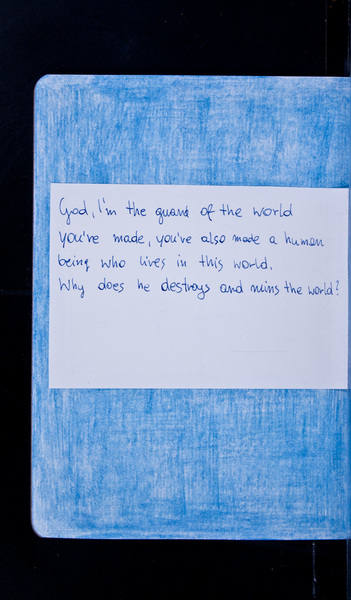 God, I'm the guard of the world
you've made, you've also made a human
being who lives in this world.
Why does he destroys and ruins the world?